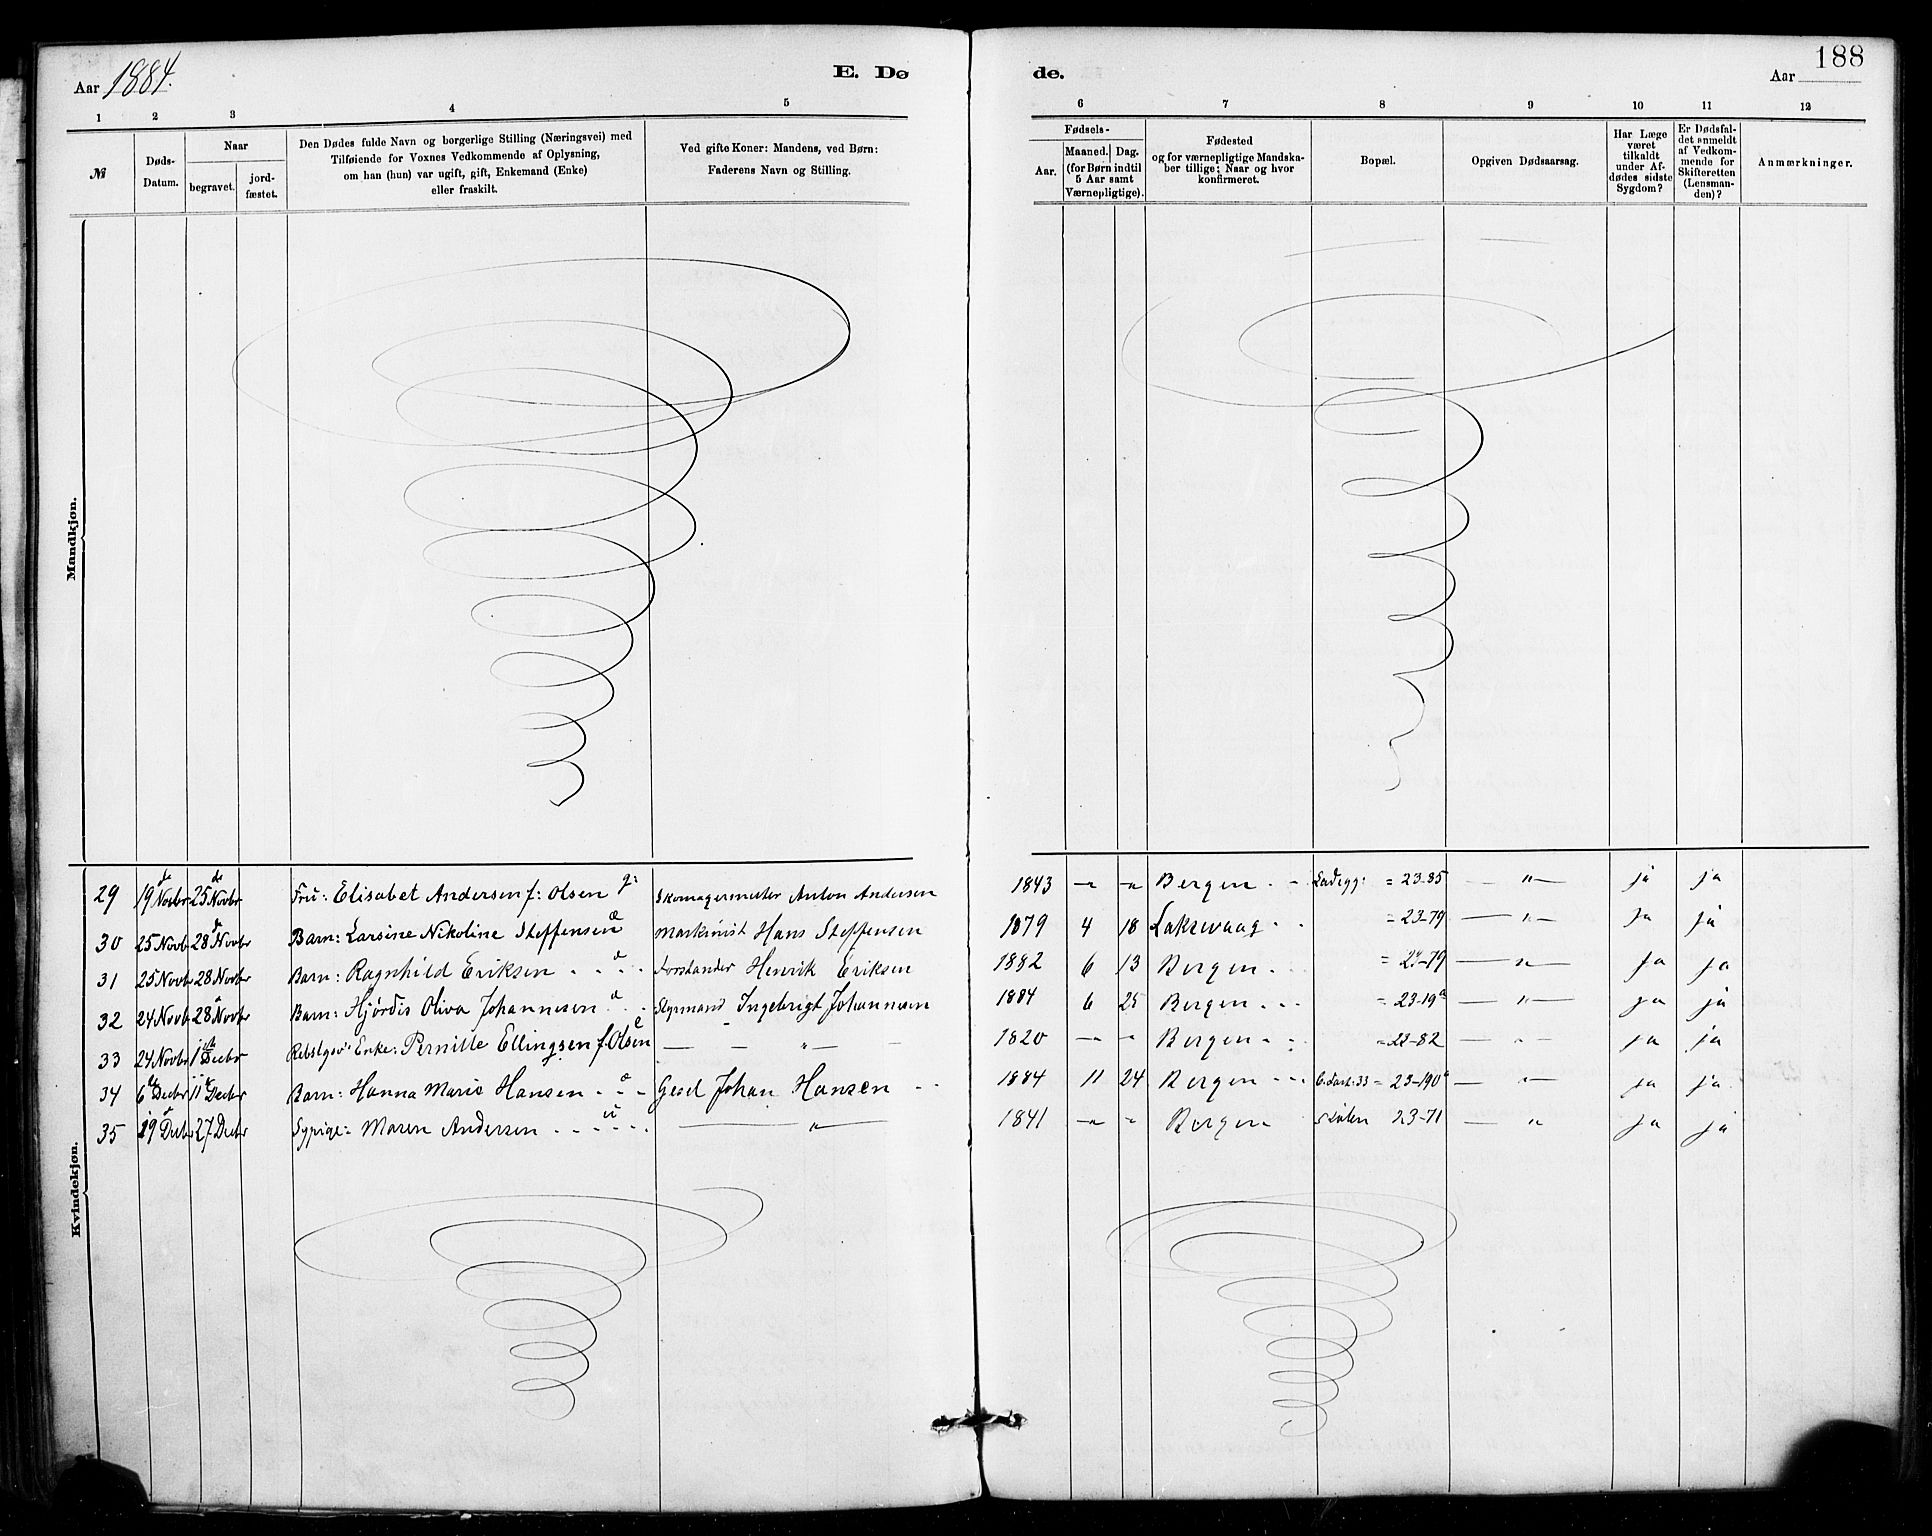 Aar 1884.
E. Dø
de.
188
Aar
1 2 3 4 5
6 7 8 9 10 11 12
№
Døds-Datum.
Naar
begravet.
jord-fæstet.
Den Dødes fulde Navn og borgerlige Stilling (Næringsvei) med
Tilføiende for Voxnes Vedkommende af Oplysning,
om han (hun) var ugift, gift, Enkemand (Enke)
eller fraskilt.
Ved gifte Koner: Mandens, ved Børn:
Faderens Navn og Stilling.
Fødsels-
Aar.
Maaned. Dag.
(for Børn indtil
5 Aar samt
Værnepligtige).
Fødested
og for værnepligtige Mandska-
ber tillige: Naar og hvor
konfirmeret.
Bopæl.
Opgiven Dødsaarsag.
Har Læge
været
tilkaldt
under Af-
dødes sidste
Sygdom?
Er Dødsfal-
det anmeldt
af Vedkom-
mende for
Skifteretten
(Lensman-
den)?
Anmærkninger.
Mandkjøn.
Kvindekjøn.
29 19 Novbr 25 Novbr Fru: Elisabet Andersen f: Olsen g: Skomagermester Anton Andersen 1843 — — Bergen = 23-85 — " — ja ja
30 25 Novbr 28 Novbr Barn: Larsine Nikoline Steffensen Maskinist Hans Steffensen 1879 4 18 Laksevaag = 23-79 — " — ja ja
31 25 Novbr 28 Novbr Barn: Ragnhild Eriksen Forstander Henrik Eriksen 1882 6 13 Bergen — " — ja ja
32 24 Novbr 28 Novbr Barn: Hjørdis Oliva Johannesen Styrmand Ingebrigt Johannesen 1884 6 25 Bergen = 23-19a — " — ja ja
33 24 Novbr 1 Decbr Enke: Pernille Ellingsen f. Olsen — " — 1820 — " Bergen — " — ja ja
34 6 Decbr 11 Decbr Barn: Hanna Marie Hansen Gesel Johan Hansen 1884 11 24 Bergen = 23-190a — " — ja ja
35 19 Decbr 27 Decbr Sypige: Maren Andersen u — " — 1841 — " Bergen 23-71 — " ja ja